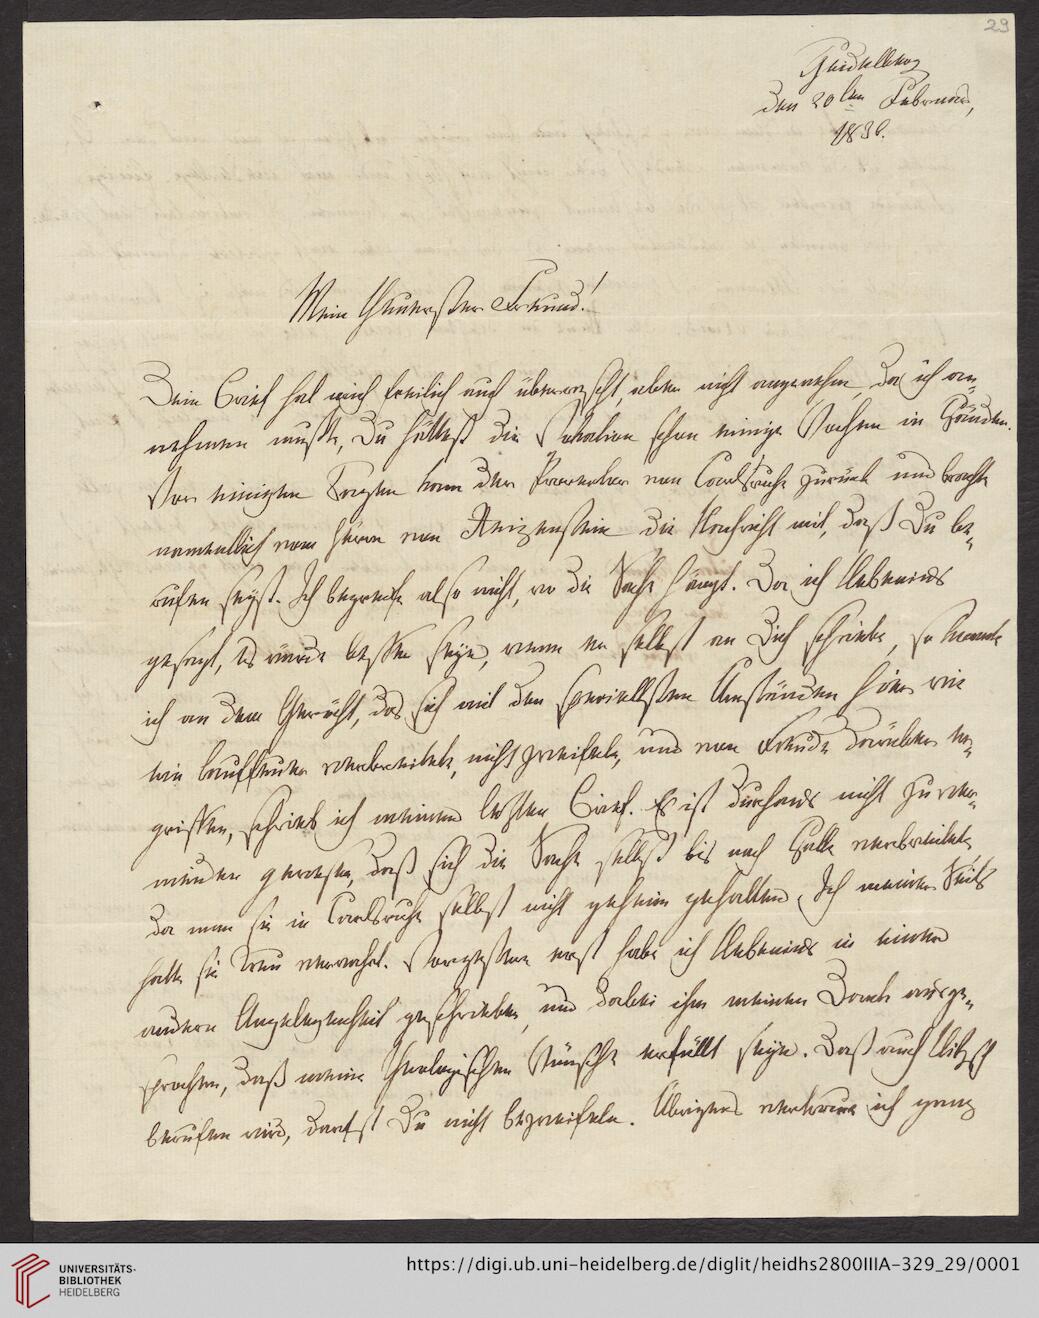 29
Heidelberg
den 20ten Februar,
1836.
Mein Theuerster Freund!
Dein Brief hat mich freilich auch überrascht, aber nicht angenehm, da ich an-
nehmen mußte, Du hättest die Vokation schon einige Wochen in Händen.
Vor einigen Tagen kam der Prorektor von Carlsruhe zurück und brachte
namentlich vom Herrn von Reizenstein die Nachricht mit, daß Du be-
rufen seyst. Ich begreife also nicht, wo die Sache hängt. Da ich Nebenius
gesagt, es würde besser seyn, wenn er selbst an Dich schriebe, so konnte
ich an dem Gerücht, das sich mit den speciellsten Umständen hier wie
ein Lauffeuer verbreitete, nicht zweifeln, und von Freude darüber er-
griffen, schrieb ich meinen letzten Brief. Es ist durchaus nicht zu ver-
wundern gewesen, daß sich die Sache selbst bis nach Halle verbreitete,
da man sie in Carlsruhe selbst nicht geheim gehalten. Ich meiner Seits
hatte sie treu verwahrt. Vorgestern erst habe ich Nebenius in einer
andern Angelegenheit geschrieben, und dabei ihm meinen Dank ausge-
sprochen, daß meine theologischen Wünsche erfüllt seyen. Daß auch Nitzsch
berufen wird, darfst Du nicht bezweifeln. Übrigens vertraue ich ganz
UNIVERSITÄTS-
BIBLIOTHEK
HEIDELBERG
https://digi.ub.uni-heidelberg.de/diglit/heidhs2800IIIA-329_29/0001